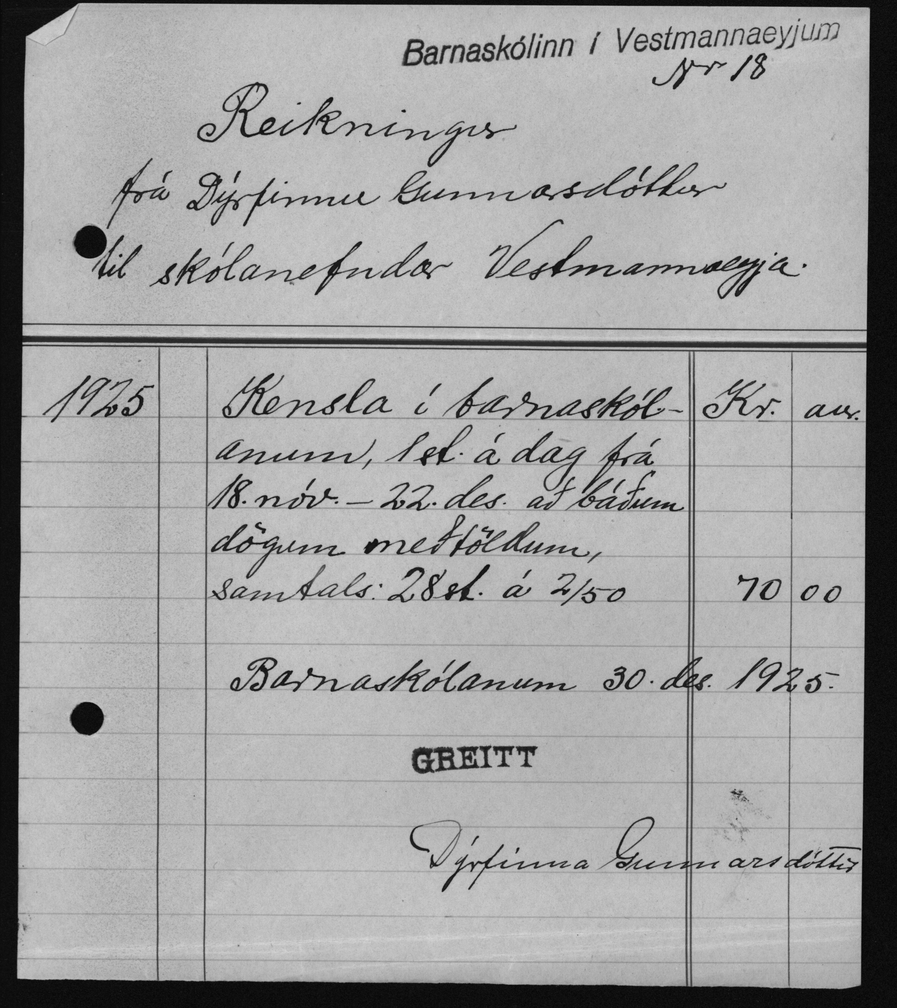 Barnaskólinn í Vestmannaeyjum
Nr 18
Reikningur
frá Dýrfinnu Gunnarsdóttur
til skólanefndar Vestmannaeyja.
1925 Kensla í barnaskól- Kr. aur.
anum, 1 st. á dag frá
18. nóv. – 22. des. að báðum
dögum meðtöldum,
samtals: 28 st. á 2/50 70 00
Barnaskólanum 30. des. 1925.
GREITT
Dýrfinna Gunnarsdóttir